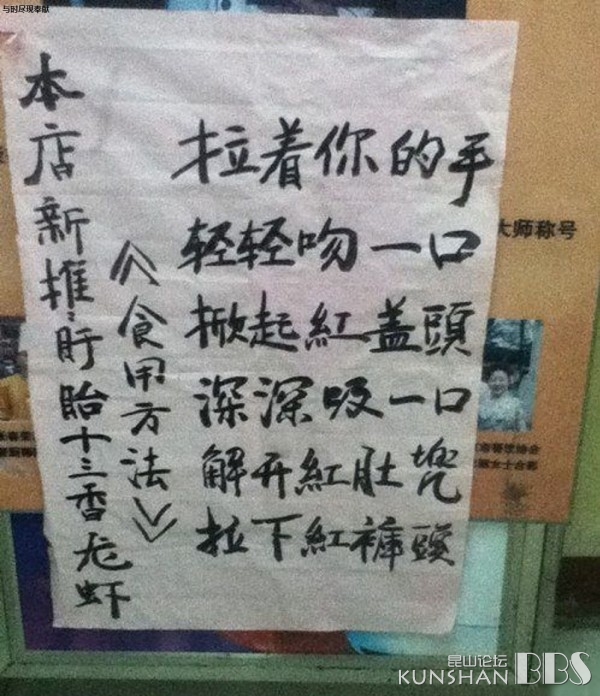 与时尽现奉献
本店新推:盱眙十三香龙虾
《食用方法》
拉着你的手
轻轻吻一口
掀起紅盖頭
深深吸一口
解开紅肚兜
拉下紅裤頭
大师称号
昆山论坛
KUNSHAN BBS